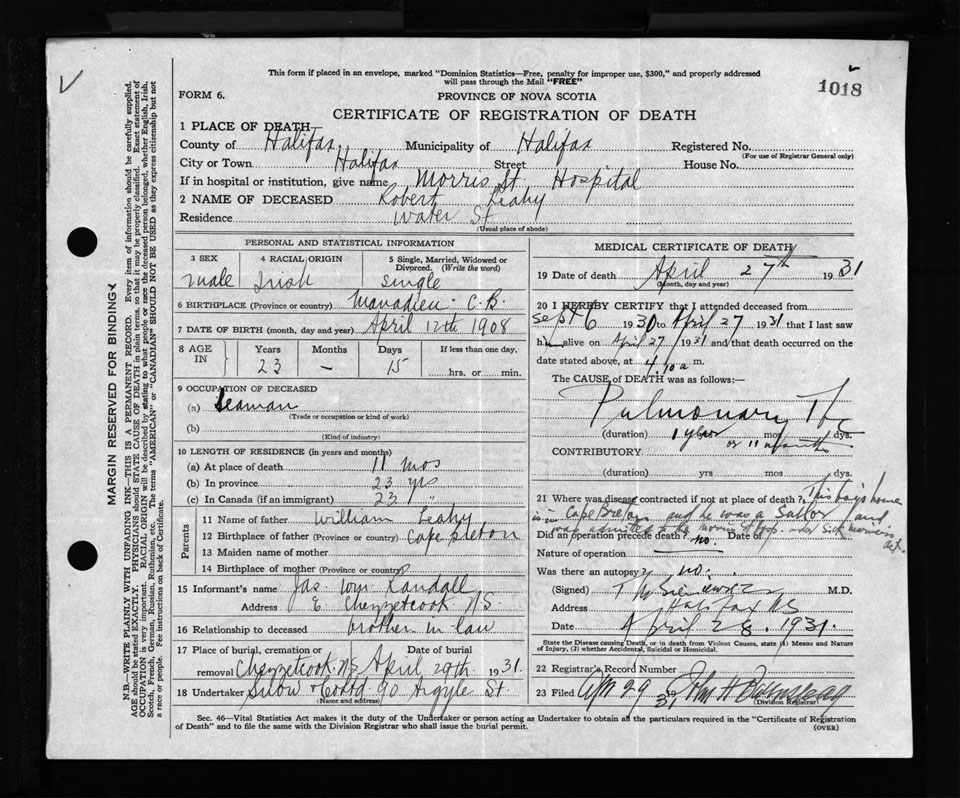 This form if placed in an envelope, marked "Dominion Statistics—Free, penalty for improper use, $300," and properly addressed
will pass through the Mail "FREE"
1018
FORM 6.
PROVINCE OF NOVA SCOTIA
CERTIFICATE OF REGISTRATION OF DEATH
1 PLACE OF DEATH
County of Halifax Municipality of Halifax Registered No.
(For use of Registrar General only)
City or Town Halifax Street House No.
If in hospital or institution, give name Morris St. Hospital
2 NAME OF DECEASED Robert Leahy
Residence Water St
(Usual place of abode)
PERSONAL AND STATISTICAL INFORMATION
3 SEX 4 RACIAL ORIGIN 5 Single, Married, Widowed or
Divorced. (Write the word)
Male Irish Single
6 BIRTHPLACE (Province or country) C.B.
7 DATE OF BIRTH (month, day and year) April 12th 1908
8 AGE IN Years Months Days If less than one day,
23 — 15
hrs. or min.
9 OCCUPATION OF DECEASED
(a) Seaman
(Trade or occupation or kind of work)
(b)
(Kind of industry)
10 LENGTH OF RESIDENCE (in years and months)
(a) At place of death 11 mos
(b) In province 23 yrs
(c) In Canada (if an immigrant) 23 "
Parents
11 Name of father William Leahy
12 Birthplace of father (Province or country) Cape Breton
13 Maiden name of mother
14 Birthplace of mother (Province or country)
15 Informant's name Jas. Wm. Randall
Address E. Chezzetcook N.S.
16 Relationship to deceased brother in law
17 Place of burial, cremation or Date of burial
removal Chezzetcook N.S. April 29th 1931
18 Undertaker Snow & Co Ltd 90 Argyle St.
(Name and address)
MEDICAL CERTIFICATE OF DEATH
19 Date of death April 27th 1931
(Month, day and year)
20 I HEREBY CERTIFY that I attended deceased from
Sept 6 1930 to April 27 1931 that I last saw
him alive on April 27 1931 and that death occurred on the
date stated above, at 4.10 a m.
The CAUSE of DEATH was as follows:—
Pulmonary
(duration) 1 yrs mos dys.
or 11 months
CONTRIBUTORY
(duration) yrs mos dys.
21 Where was disease contracted if not at place of death? This boy's home
is in Cape Breton and he was a Sailor and
was admitted to the Morris St Hosp. under Sick Mariners
Act.
Did an operation precede death? no. Date of
Nature of operation
Was there an autopsy? no.
(Signed) M.D.
Address Halifax NS
Date April 28. 1931.
State the Disease causing Death, or in death from Violent Causes, state (1) Means and Nature
of Injury, (2) whether Accidental, Suicidal or Homicidal.
22 Registrar's Record Number
23 Filed Apr 29 1931 John H.
(Division Registrar)
Sec. 46—Vital Statistics Act makes it the duty of the Undertaker or person acting as Undertaker to obtain all the particulars required in the "Certificate of Registration
of Death" and to file the same with the Division Registrar who shall issue the burial permit.
(OVER)
MARGIN RESERVED FOR BINDING
N.B.—WRITE PLAINLY WITH UNFADING INK—THIS IS A PERMANENT RECORD. Every item of information should be carefully supplied.
AGE should be stated EXACTLY. PHYSICIANS should STATE CAUSE OF DEATH in plain terms, so that it may be properly classified. Exact statement of
OCCUPATION is very important. RACIAL ORIGIN will be described by stating to what people or race the deceased person belonged, whether English, Irish,
Scotch, French, German, Russian, Ruthenian, etc. The terms "AMERICAN" or "CANADIAN" SHOULD NOT BE USED as they express citizenship but not
a race or people. Fee instructions on back of Certificate.